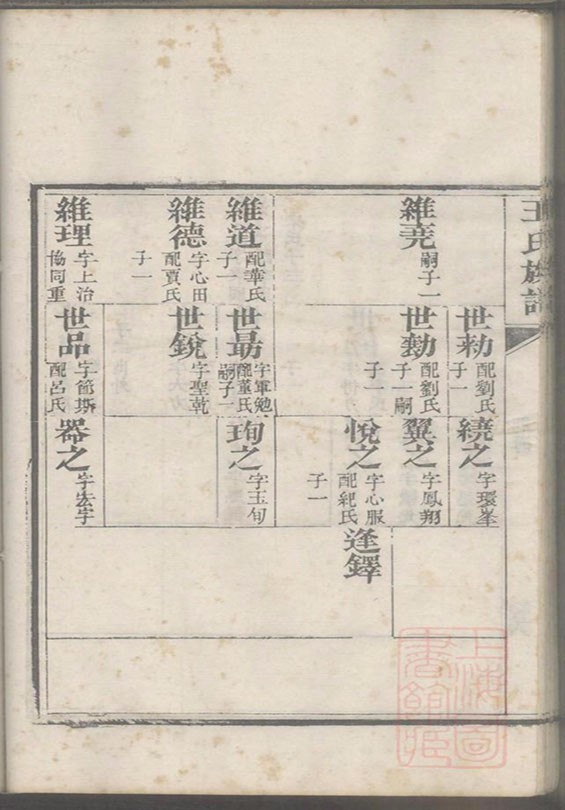 王氏族譜
世勑
配劉氏
子一
繞之
字環峯
維堯
嗣子一
世勷
配劉氏
子一嗣
翼之
字鳳翔
子
悅之
字心服
配紀氏
子一
逢鐸
維道
配華氏
子一
世勗
字軍勉
配董氏
嗣子一
珣之
字玉旬
維德
字心田
配賈氏
子一
世銳
字聖乾
維理
字上治
協同重
世品
字節斯
配呂氏
器之
字宏宇
上海圖書館藏